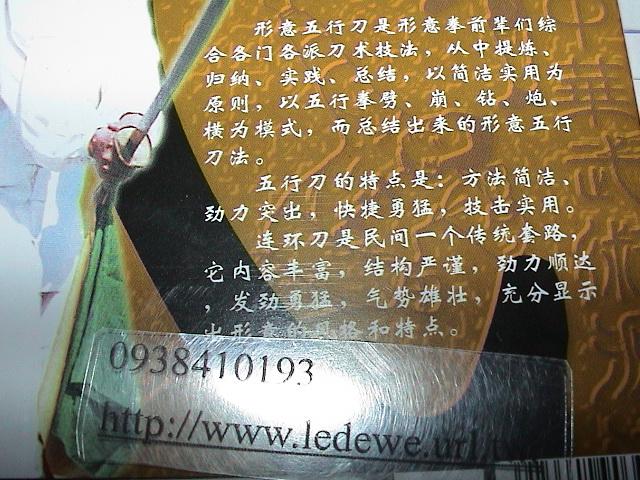 形意五行刀是形意拳前辈们综
合各门各派刀术技法，从中提炼、
归纳、实践、总结，以简洁实用为
原则，以五行拳劈、崩、钻、炮、
横为模式，而总结出来的形意五行
刀法。
五行刀的特点是：方法简洁、
劲力突出，快捷勇猛，技击实用。
连环刀是民间一个传统套路，
它内容丰富，结构严谨，劲力顺达
，发劲勇猛，气势雄壮，充分显示
出形意的风格和特点。
0938410193
http://www.ledewe.url.tw
中華武術